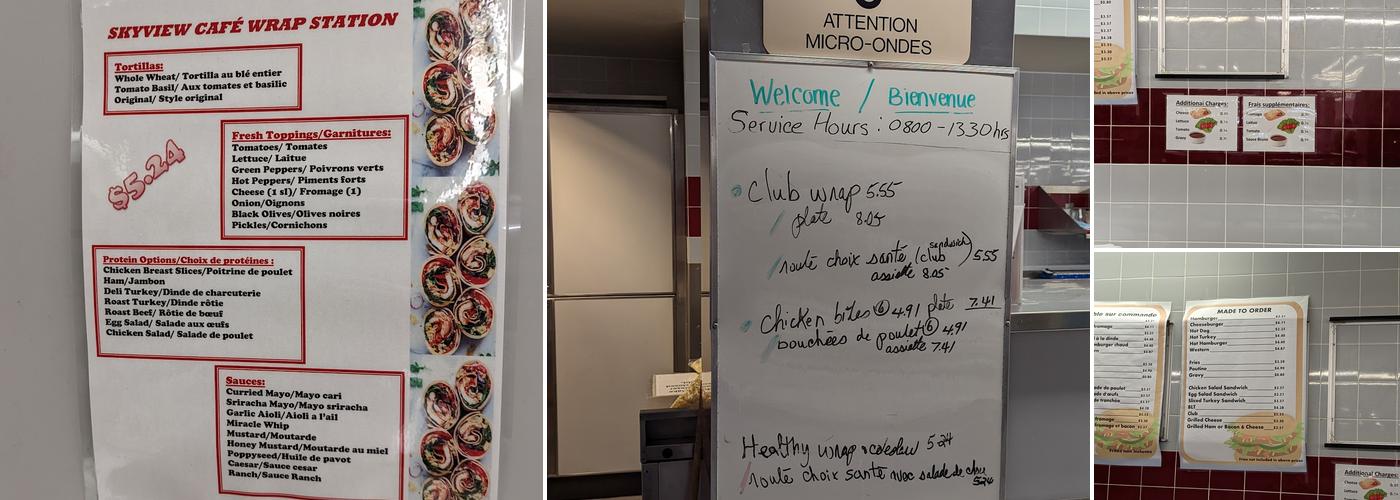 SKYVIEW CAFÉ WRAP STATION
Tortillas:
Whole Wheat/ Tortilla au blé entier
Tomato Basil/ Aux tomates et basilic
Original/ Style original
$5.24
Fresh Toppings/Garnitures:
Tomatoes/ Tomates
Lettuce/ Laitue
Green Peppers/ Poivrons verts
Hot Peppers/ Piments forts
Cheese (1 sl)/ Fromage (1)
Onion/Oignons
Black Olives/Olives noires
Pickles/Cornichons
Protein Options/Choix de protéines :
Chicken Breast Slices/Poitrine de poulet
Ham/Jambon
Deli Turkey/Dinde de charcuterie
Roast Turkey/Dinde rôtie
Roast Beef/ Rôtie de bœuf
Egg Salad/ Salade aux œufs
Chicken Salad/ Salade de poulet
Sauces:
Curried Mayo/Mayo cari
Sriracha Mayo/Mayo sriracha
Garlic Aioli/Aioli a l'ail
Miracle Whip
Mustard/Moutarde
Honey Mustard/Moutarde au miel
Poppyseed/Huile de pavot
Caesar/Sauce cesar
Ranch/Sauce Ranch
ATTENTION
MICRO-ONDES
Welcome / Bienvenue
Service Hours : 0800 - 1330hrs
Club wrap 5.55
/ plate 8.05
/ roulé choix santé (club sandwich) 5.55
assiette 8.05
Chicken bites (6) 4.91 plate 7.41
bouchées de poulet (6) 4.91
assiette 7.41
Healthy wrap + coleslaw 5.24
/ roulé choix santé avec salade de chou
5.24
Additional Charges:
Cheese
Lettuce
Tomato
Gravy
Frais supplémentaires:
Fromage
Laitue
Tomate
Sauce Brune
MADE TO ORDER
Hamburger
Cheeseburger
Hot Dog
Hot Turkey
Hot Hamburger
Western
Fries
Poutine
Gravy
Chicken Salad Sandwich
Egg Salad Sandwich
Sliced Turkey Sandwich
BLT
Club
Grilled Cheese
Grilled Ham or Bacon & Cheese
Fries not included in above prices
Additional Charges: